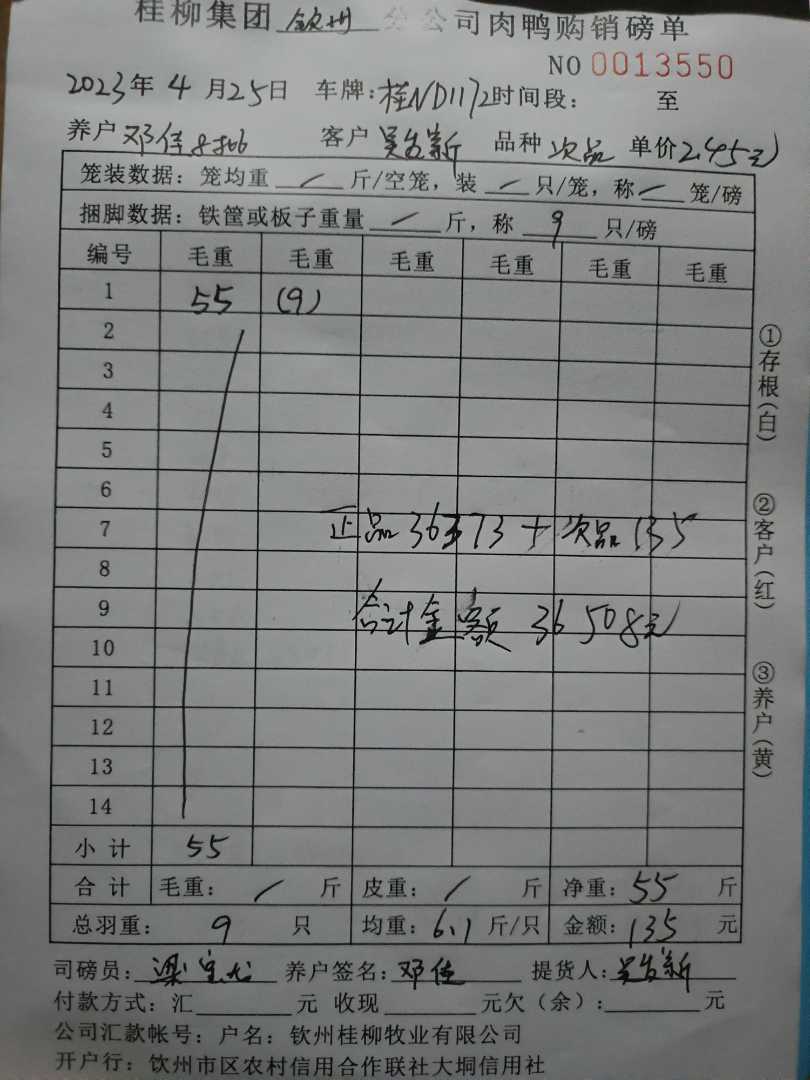 桂柳集团 钦州 分公司肉鸭购销磅单
NO 0013550
2023年 4 月25日 车牌:桂ND1172时间段: 至
养户 邓佳 客户 吴发新 品种 次品 单价2.45元
笼装数据: 笼均重 / 斤/空笼, 装 / 只/笼, 称 / 笼/磅
捆脚数据: 铁筐或板子重量 / 斤, 称 9 只/磅
编号 毛重 毛重 毛重 毛重 毛重 毛重
1 55 (9)
2
3
4
5
6
7
正品36373+次品135
8
9
合计金额 36508元
10
11
12
13
14
小 计 55
合 计 毛重: / 斤 皮重: / 斤 净重: 55 斤
总羽重: 9 只 均重: 6.1 斤/只 金额: 135 元
司磅员: 梁 养户签名: 邓佳 提货人: 吴发新
付款方式: 汇 元 收现 元欠(余): 元
公司汇款帐号: 户名: 钦州桂柳牧业有限公司
开户行: 钦州市区农村信用合作联社大垌信用社
①存根(白)
②客户(红)
③养户(黄)